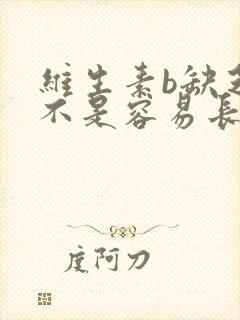 維生素b缺
不是容易長
度阿刀